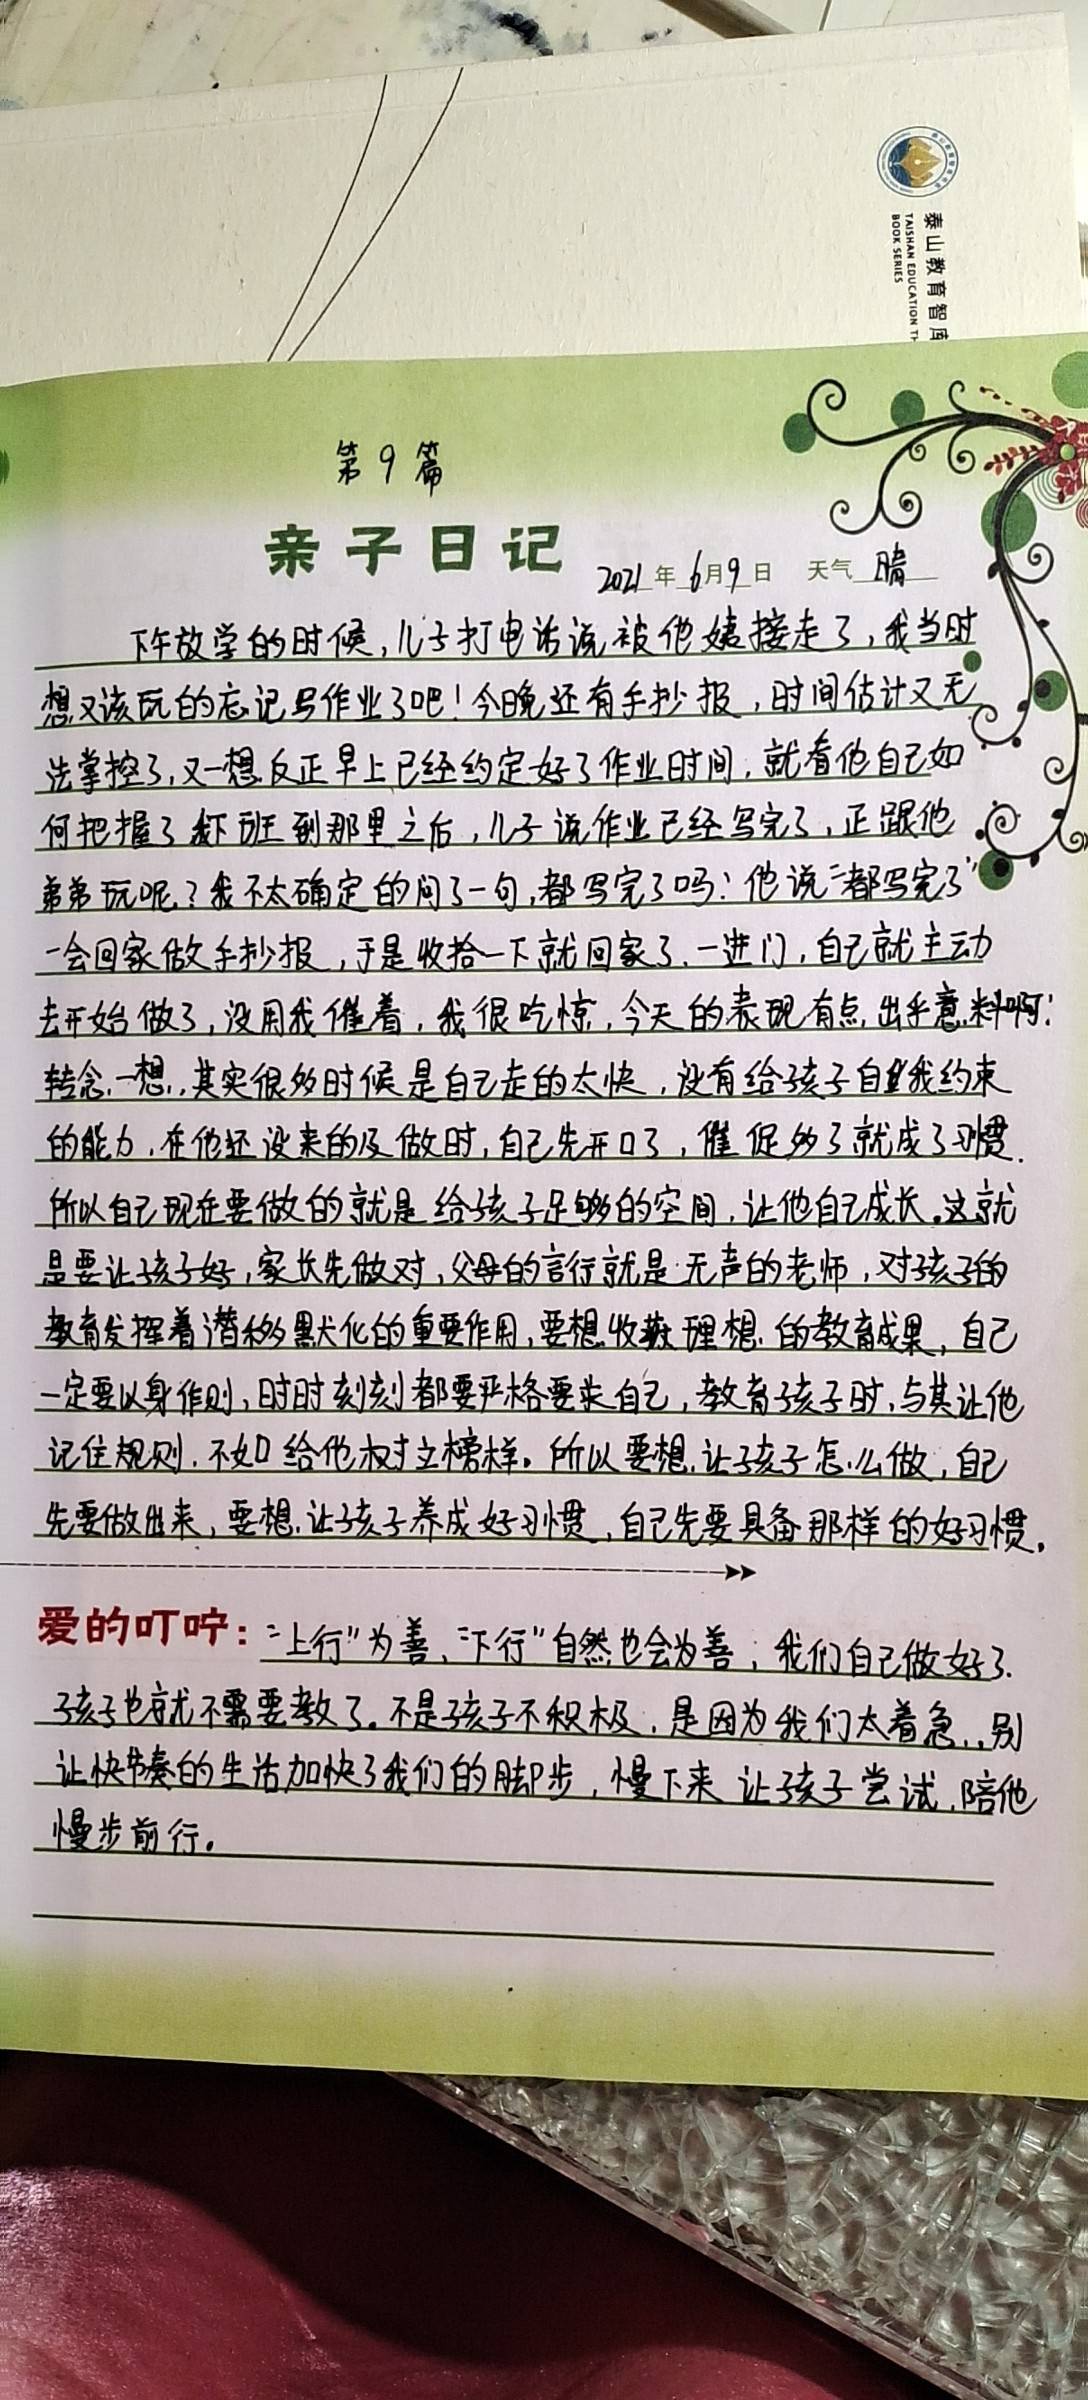 泰山教育智库
TAISHAN EDUCATION TH
BOOK SERIES
第9篇
亲子日记
2021年6月9日 天气 晴
下午放学的时候,儿子打电话说被他姨接走了,我当时
想又该玩的忘记写作业了吧!今晚还有手抄报,时间估计又无
法掌控了,又一想反正早上已经约定好了作业时间,就看他自己如
何把握了 下班到那里之后,儿子说作业已经写完了,正跟他
弟弟玩呢?我不太确定的问了一句,都写完了吗?他说“都写完了”
一会回家做手抄报,于是收拾一下就回家了.一进门,自己就主动
去开始做了,没用我催着,我很吃惊,今天的表现有点出乎意料啊!
转念一想,其实很多时候是自己走的太快,没有给孩子自我约束
的能力,在他还没来的及做时,自己先开口了,催促多了就成了习惯.
所以自己现在要做的就是给孩子足够的空间,让他自己成长。这就
是要让孩子好,家长先做对,父母的言行就是无声的老师,对孩子的
教育发挥着潜移默化的重要作用,要想收获理想的教育成果,自己
一定要以身作则,时时刻刻都要严格要求自己,教育孩子时,与其让他
记住规则,不如给他树立榜样。所以要想让孩子怎么做,自己
先要做出来,要想让孩子养成好习惯,自己先要具备那样的好习惯。
爱的叮咛:“上行”为善,“下行”自然也会为善;我们自己做好了.
孩子也就不需要教了。不是孩子不积极,是因为我们太着急..别
让快节奏的生活加快了我们的脚步,慢下来 让孩子尝试,陪他
慢步前行。